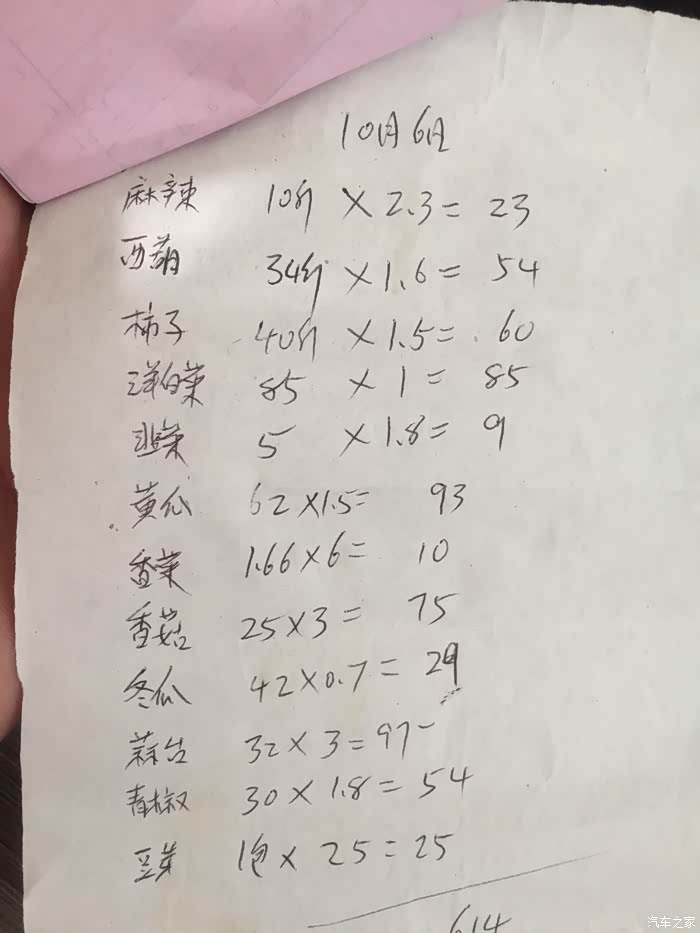 10月6日
麻辣 10斤 × 2.3 = 23
西葫 34斤 × 1.6 = 54
柿子 40斤 × 1.5 = 60
洋白菜 85 × 1 = 85
韭菜 5 × 1.8 = 9
黄瓜 62 × 1.5 = 93
香菜 1.66 × 6 = 10
香菇 25 × 3 = 75
冬瓜 42 × 0.7 = 29
蒜台 32 × 3 = 97
青椒 30 × 1.8 = 54
豆芽 1包 × 25 = 25
614
汽车之家